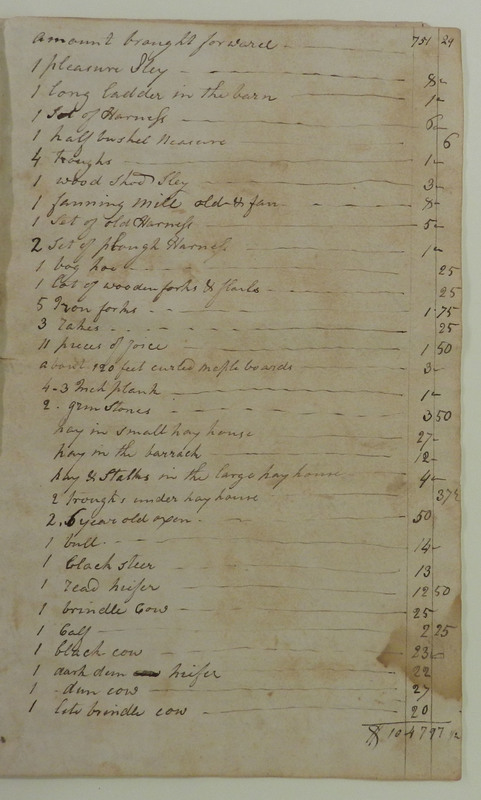 Amount brought forward 751 29
1 pleasure Sley 8-
1 long ladder in the barn 1-
1 Set of Harness 6-
1 half bushel measure 6
4 troughs 1-
1 wood Shod Sley 3-
1 fanning mill old & fan 8-
1 Set of old Harness 5-
2 Set of plough Harness 1-
1 bog hoe 25
1 Lot of wooden forks & flails 25
5 Iron forks 1 75
3 rakes 25
11 pieces of joice 1 50
about 120 feet curled maple boards 3-
4-3 Inch plank 1-
2. grin Stones 3 50
hay in small hay house 27-
hay in the barrack 12-
hay & Stalks in the large hay house 4-
2 troughs under hay house 37½
2. 6 year old oxen. 50
1 bull. 14-
1 black steer 13
1 read heifer 12 50
1 brindle Cow 25
1 Calf 2 25
1 black cow 23
1 dark dun heifer 22
1 dun cow 27
1 brindle cow 20
$ 1047 97½